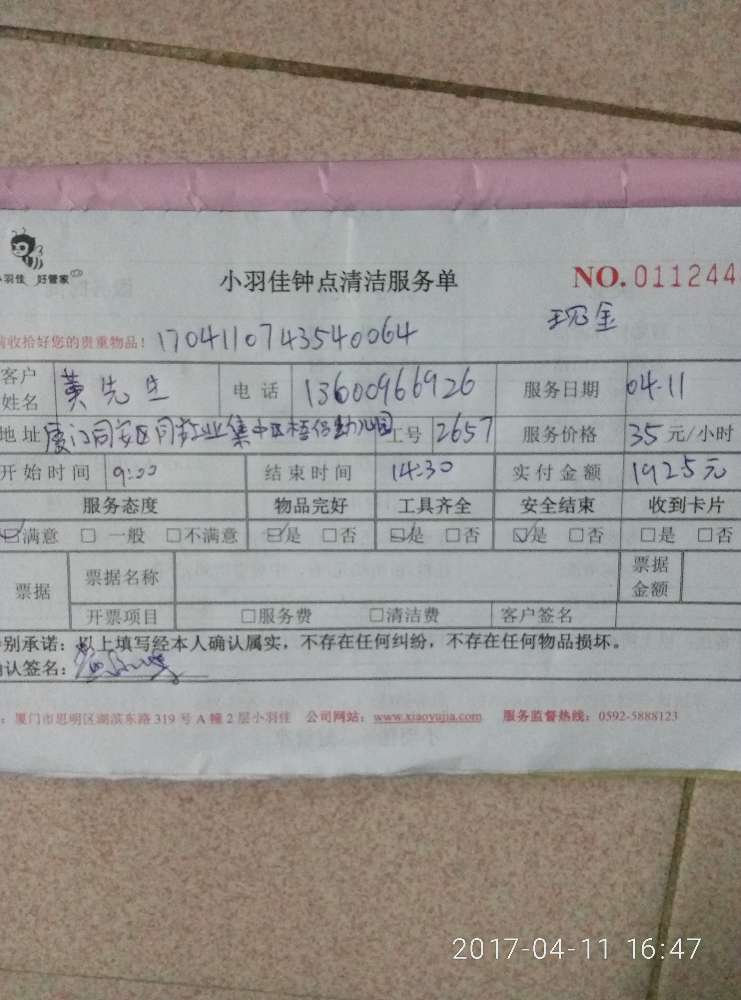 小羽佳 好管家
小羽佳钟点清洁服务单
NO. 011244
现金
收拾好您的贵重物品！ 1704110743540064
客户姓名 黄先生 电话 13600966926 服务日期 04.11
地址 厦门同安区同安工业集中区梧侣幼儿园 工号 2657 服务价格 35 元/小时
开始时间 9:00 结束时间 14:30 实付金额 192.5元
服务态度 物品完好 工具齐全 安全结束 收到卡片
☑满意 □ 一般 □不满意 ☑是 □否 ☑是 □否 ☑是 □否 □是 □否
票据 票据名称 票据金额
开票项目 □服务费 □清洁费 客户签名
别承诺：以上填写经本人确认属实，不存在任何纠纷，不存在任何物品损坏。
确认签名：
：厦门市思明区湖滨东路 319 号 A 幢 2 层小羽佳 公司网站：www.xiaoyujia.com 服务监督热线：0592-5888123
2017-04-11 16:47